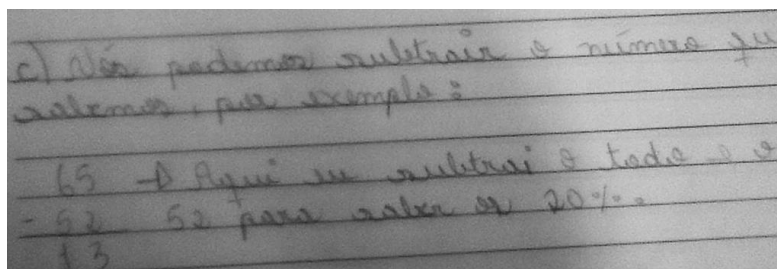 c) Nós podemos subtrair o número qu
sabemos, por exemplo:
65 → Aqui eu subtrai o todo e o
- 52 52 para saber os 20%.
13